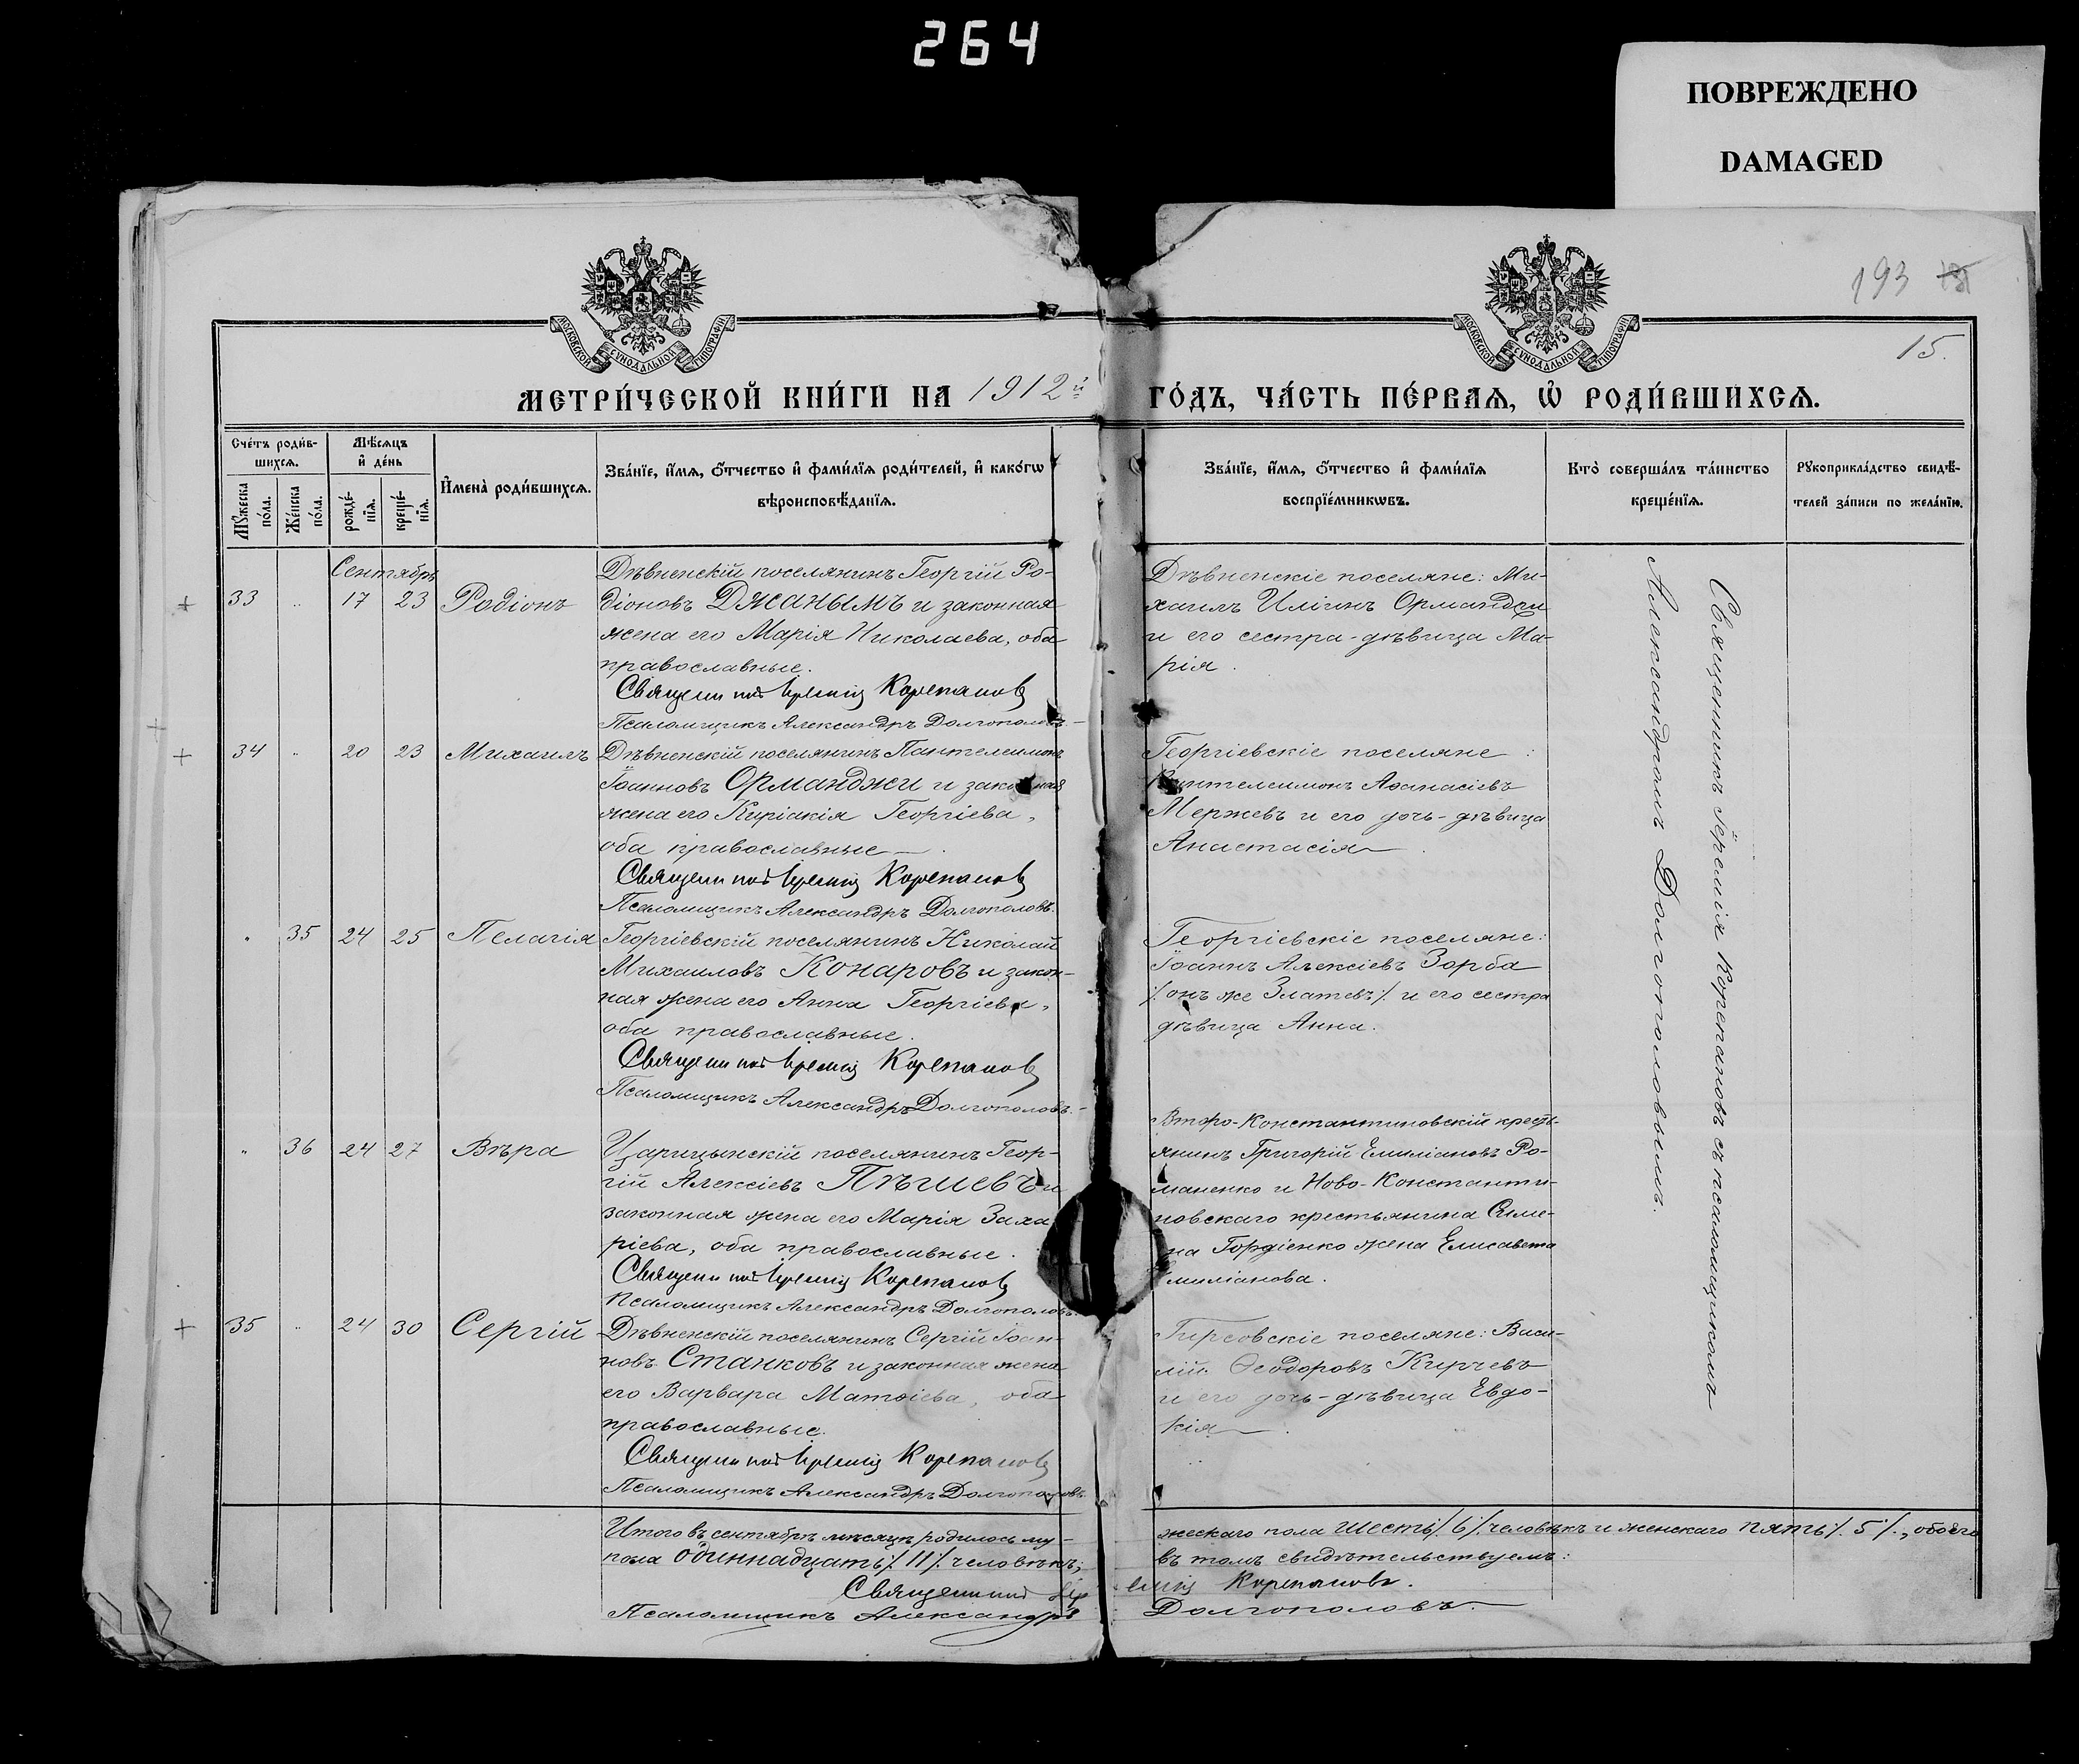 264
ПОВРЕЖДЕНО
DAMAGED
193
15.
МОСКОВСКОЙ СѴНОДАЛЬНОЙ ТИПОГРАФІИ
МОСКОВСКОЙ СѴНОДАЛЬНОЙ ТИПОГРАФІИ
МЕТРИ́ЧЕСКОЙ КНИ́ГИ НА 1912й ГО́ДЪ, ЧА́СТЬ ПЕ́РВАѦ, Ѡ҆ РОДИ́ВШИХСѦ.
Сче́тъ роди́в-
шихсѧ.
Мѣ́сѧцъ
и҆ де́нь
Мꙋ́жеска
по́ла.
Же́нска
по́ла.
рожде́-
нїѧ.
креще́-
нїѧ.
И҆мена̀ роди́вшихсѧ.
Зва́нїе, и҆́мѧ, ѻ҆́тчество и҆ фами́лїѧ роди́телей, и҆ како́гѡ
вѣроисповѣ́данїѧ.
Зва́нїе, и҆́мѧ, ѻ҆́тчество и҆ фами́лїѧ
воспрїе́мникѡвъ.
Кто̀ соверша́лъ та́инство
креще́нїѧ.
Рꙋкоприкла́дство свидѣ́-
телей за́писи по жела́нїю.
Сентябрь
33 " 17 23 Родіонъ
Дѣвненскій поселянинъ Георгій Ро-
діоновъ Джанымъ и законная
жена его Марія Николаева, оба
православные.
Священникъ Іеремія Корепановъ
Псаломщикъ Александръ Долгополовъ.
Дѣвненскіе поселяне: Ми-
хаилъ Иліинъ Орманджи
и его сестра-дѣвица Ма-
рія.
34 " 20 23 Михаилъ
Дѣвненскій поселянинъ Пантелеимонъ
Іоанновъ Орманджи и законная
жена его Киріакія Георгіева,
оба православные.
Священникъ Іеремія Корепановъ
Псаломщикъ Александръ Долгополовъ.
Георгіевскіе поселяне:
Пантелеимонъ Аѳанасіевъ
Мержевъ и его дочь-дѣвица
Анастасія.
" 35 24 25 Пелагія
Георгіевскій поселянинъ Николай
Михаиловъ Конаровъ и закон-
ная жена его Анна Георгіева,
оба православные.
Священникъ Іеремія Корепановъ
Псаломщикъ Александръ Долгополовъ.
Георгіевскіе поселяне:
Іоаннъ Алексіевъ Зорба
/. онъ же Златевъ /. и его сестра
дѣвица Анна.
" 36 24 27 Вѣра
Царицынскій поселянинъ Геор-
гій Алексіевъ Пѣшевъ и
законная жена его Марія Заха
ріева, оба православные.
Священникъ Іеремія Корепановъ
Псаломщикъ Александръ Долгополовъ.
Второ-Константиновскій кресть-
янинъ Григорій Емиліановъ Ро-
маненко и Ново-Константи-
новскаго крестьянина Симе-
на Гордіенко жена Елисавета
Емиліанова.
35 " 24 30 Сергій
Дѣвненскій поселянинъ Сергій Іоан-
новъ Станковъ и законная жена
его Варвара Матѳіева, оба
православные.
Священникъ Іеремія Корепановъ
Псаломщикъ Александръ Долгополовъ.
Гирсовскіе поселяне: Васи-
лій Ѳеодоровъ Кирчевъ
и его дочь-дѣвица Евдо-
кія.
Священникъ Іеремія Корепановъ съ псаломщикомъ
Александромъ Долгополовымъ.
Итого въ сентябрѣ мѣсяцѣ родилось му-жескаго пола шесть /. 6 /. человѣкъ и женскаго пять /. 5 /., обоего
пола одиннадцать /. 11 /. человѣкъ; въ томъ свидѣтельствуемъ:
Священникъ Іеремія Корепановъ.
Псаломщикъ Александръ Долгополовъ.